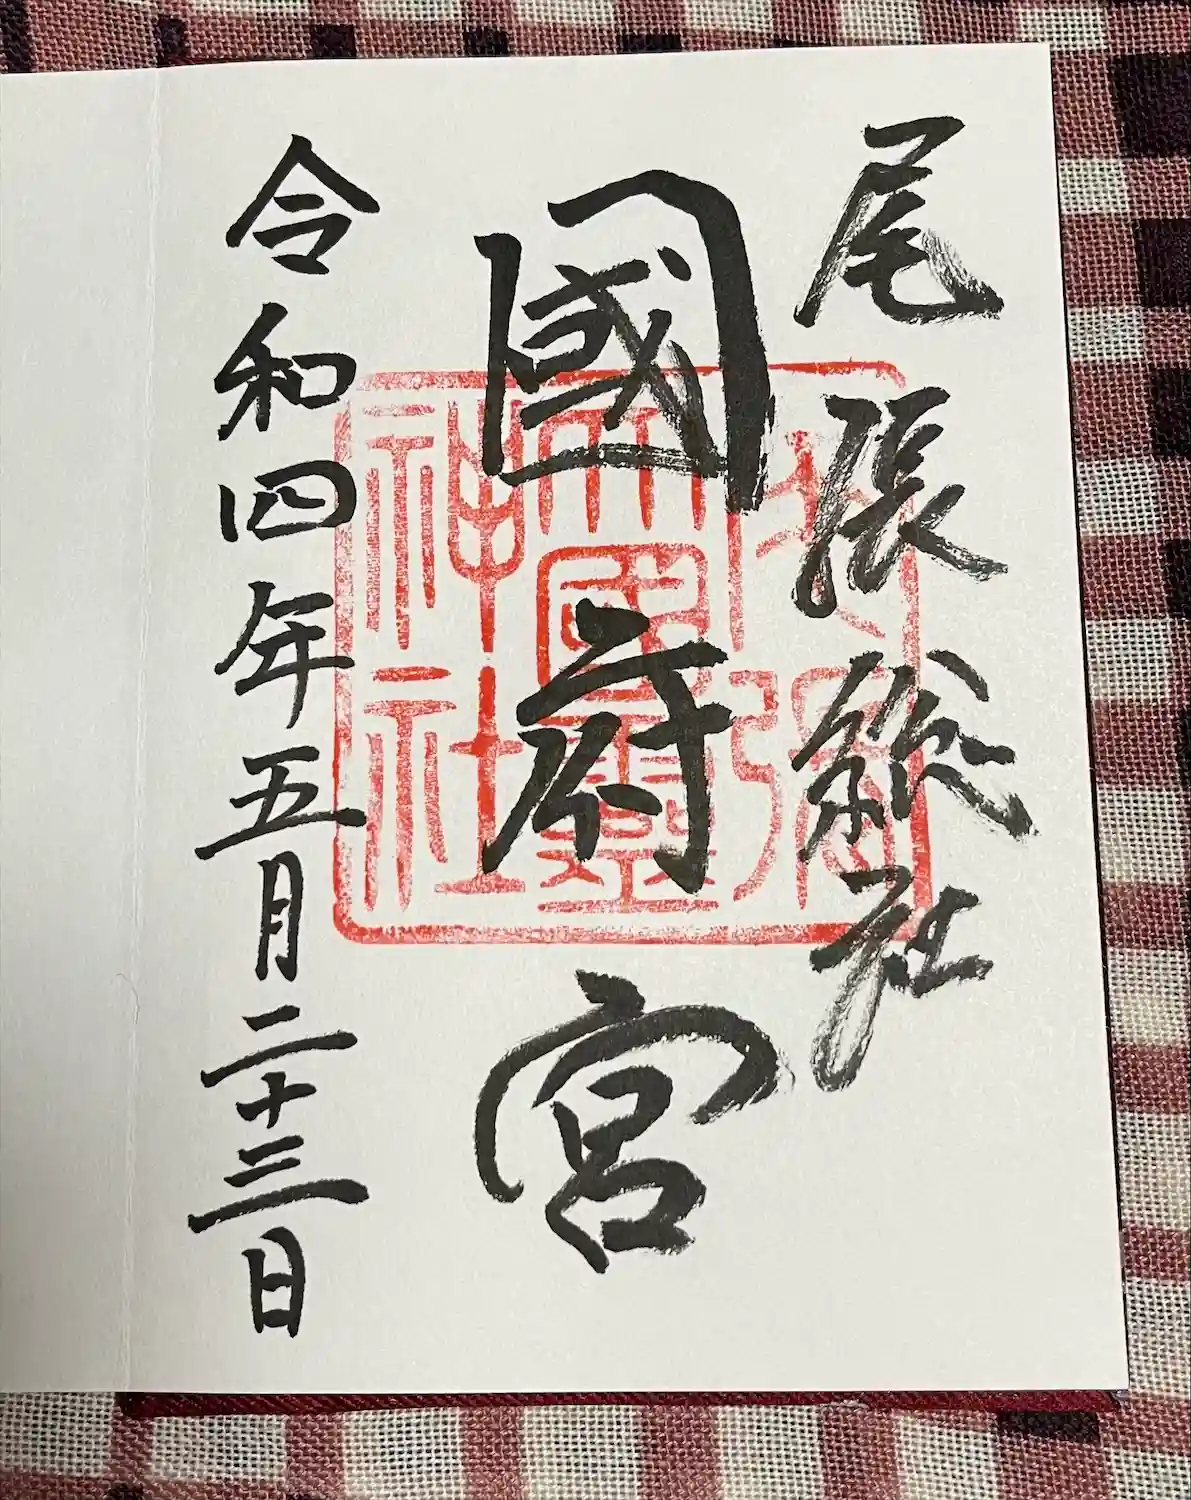 尾張総社
國府宮
令和四年五月二十三日
尾張
大國霊
神社